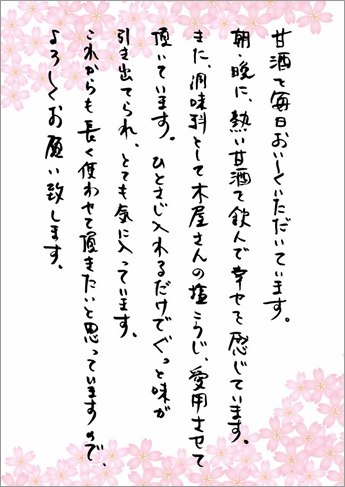 甘酒を毎日おいしくいただいています。
朝・晩に、熱い甘酒を飲んで幸せを感じています。
また、調味料として木屋さんの塩こうじ、愛用させて
頂いています。ひとさじ入れるだけでぐっと味が
引き出てられ、とても気に入っています。
これからも長く使わせて頂きたいと思っていますので、
よろしくお願い致します。